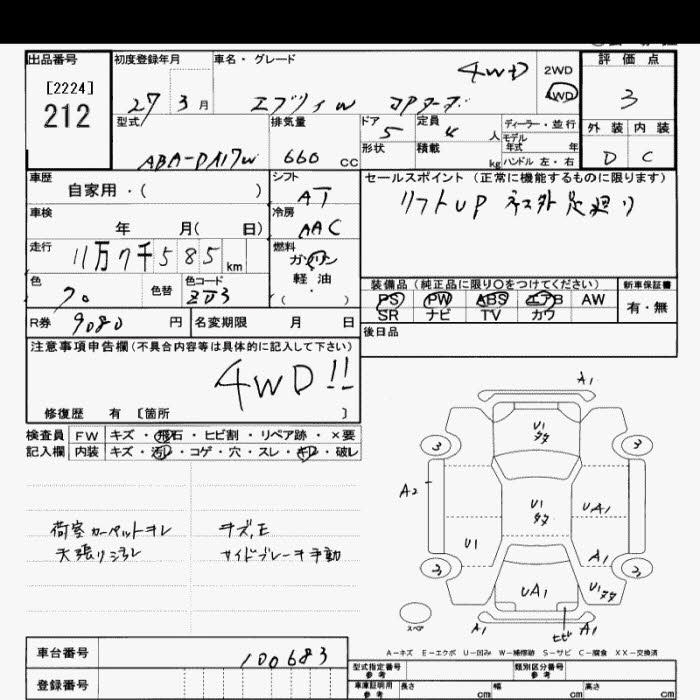 出品番号 初度登録年月 車名・グレード 評価点
[2224]
212
27年 3月
エブリィW JPターボ
4WD
2WD
4WD
3
外装 内装
D C
型式 排気量 ドア 定員 ディーラー・並行
ABA-DA17W 660 CC 5 4人
モデル年式 年
形状 積載 kg ハンドル 左・右
車歴 シフト セールスポイント (正常に機能するものに限ります)
自家用・( ) AT リフトUP
車検 冷房
年 月( 日) AAC
走行 燃料
11万7千585km ガソリン
軽油
・
( )
色 色替 色コード
クロ ZJ3
装備品 (純正品に限り○をつけてください) 新車保証書
PS PW ABS エアB AW 有・無
SR ナビ TV カワ
R券 9080円 名変期限 月 日
後日品
注意事項申告欄 (不具合内容等は具体的に記入して下さい)
4WD!!
修復歴 有 [箇所 ]
検査員 FW キズ・飛石・ヒビ割・リペア跡・×要
記入欄 内装 キズ・汚レ・コゲ・穴・スレ・キレ・破レ
荷室カーペットヨレ キズ,E
天張りヨゴレ サイドブレーキ手動
A1
U1
タタ
3 3
A2
U1
タタ
UA1
U1
A1
3 3
UA1
U1タタ
スペア
A1 ヒビ A1
A-キズ E-エクボ U-凹み W-補修跡 S-サビ C-腐食 XX-交換済
車台番号 100683
登録番号
型式指定番号 参考 類別区分番号 参考
車庫証明用 参考 長さ cm 幅 cm 高さ cm